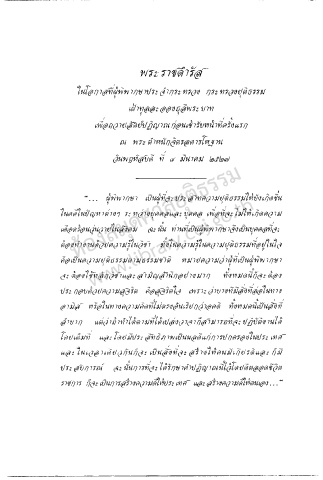 พระราชดำรัส
ในโอกาสที่ผู้พิพากษาประจำกระทรวง กระทรวงยุติธรรม
เฝ้าทูลละอองธุลีพระบาท
เพื่อถวายสัตย์ปฏิญาณก่อนเข้ารับหน้าที่ครั้งแรก
ณ พระตำหนักจิตรลดารโหฐาน
วันพฤหัสบดี ที่ ๘ มีนาคม ๒๕๒๗
"... ผู้พิพากษา เป็นผู้ที่จะประสาทความยุติธรรมให้ยิ่งเกิดขึ้น
ในคดีในปัญหาต่างๆ ระหว่างบุคคลและบุคคล เพื่อที่จะไม่ให้เกิดความ
เดือดร้อนวุ่นวายในสังคม ฉะนั้น ท่านที่เป็นผู้พิพากษาจึงเป็นบุคคลที่จะ
ต้องทำงานด้วยความรู้ในวิชา ทั้งในความรู้ในความยุติธรรมที่อยู่ในใจ
คือเป็นความยุติธรรมตามธรรมชาติ หมายความว่าผู้ที่เป็นผู้พิพากษา
จะต้องใช้หลักวิชาและสามัญสำนึกอย่างมาก ทั้งหมดนี้ก็จะต้อง
ประกอบด้วยความสุจริต คือสุจริตใจ เพราะว่าบางทีมีสิ่งที่ล่อใจทาง
อามิส หรือในทางความคิดที่ไม่ตรงอันเรียกว่าอคติ ทั้งหมดนี้เป็นสิ่งที่
ลำบาก แต่ว่าถ้าทำได้ตามที่ได้เปล่งวาจาก็สามารถที่จะปฏิบัติงานได้
โดยเต็มที่ และโดยมีประสิทธิภาพเป็นผลดีแก่การปกครองในประเทศ
และในเวลาเดียวกันก็จะเป็นสิ่งที่จะสร้างให้ตนมีเกียรติและก็มี
ประสบการณ์ ฉะนั้นการที่จะได้รักษาคำปฏิญาณนี้ไว้โดยตลอดชีวิต
ราชการ ก็จะเป็นการสร้างความดีให้ประเทศ และสร้างความดีให้ตนเอง..."